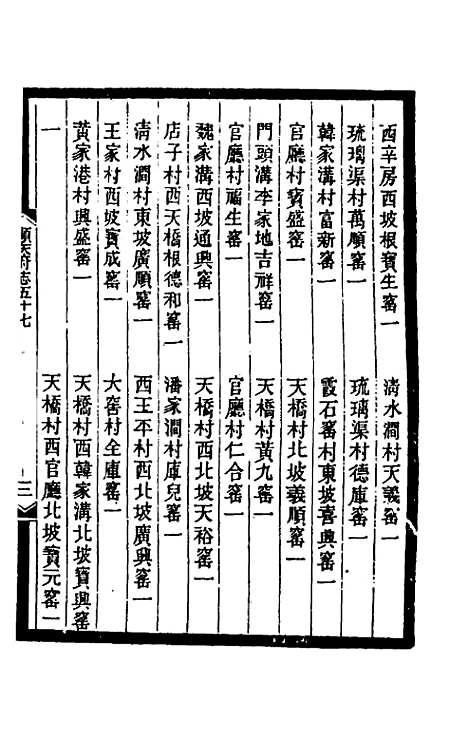 西辛房西坡根寶生窰一　清水澗村天義窑一
琉璃渠村萬順窰一　琉璃渠村德庫窰一
韓家溝村富新窰一　霞石窰村東坡喜興窰一
官廳村寶盛窰一　天橋村北坡義順窰一
門頭溝李家地吉祥窰一　天橋村黃九窰一
官廳村福生窰一　官廳村仁合窰一
魏家溝西坡通興窰一　天橋村西北坡天裕窰一
店子村西天橋根德和窰一　潘家澗村庫兒窰一
清水澗村東坡廣順窰一　西王平村西北坡廣興窰一
王家村西坡寶成窰一　大窖村全庫窰一
黃家港村興盛窰一　天橋村西韓家溝北坡寶興窰
一　天橋村西官廳北坡寶元窰一
順天府志五十七　三